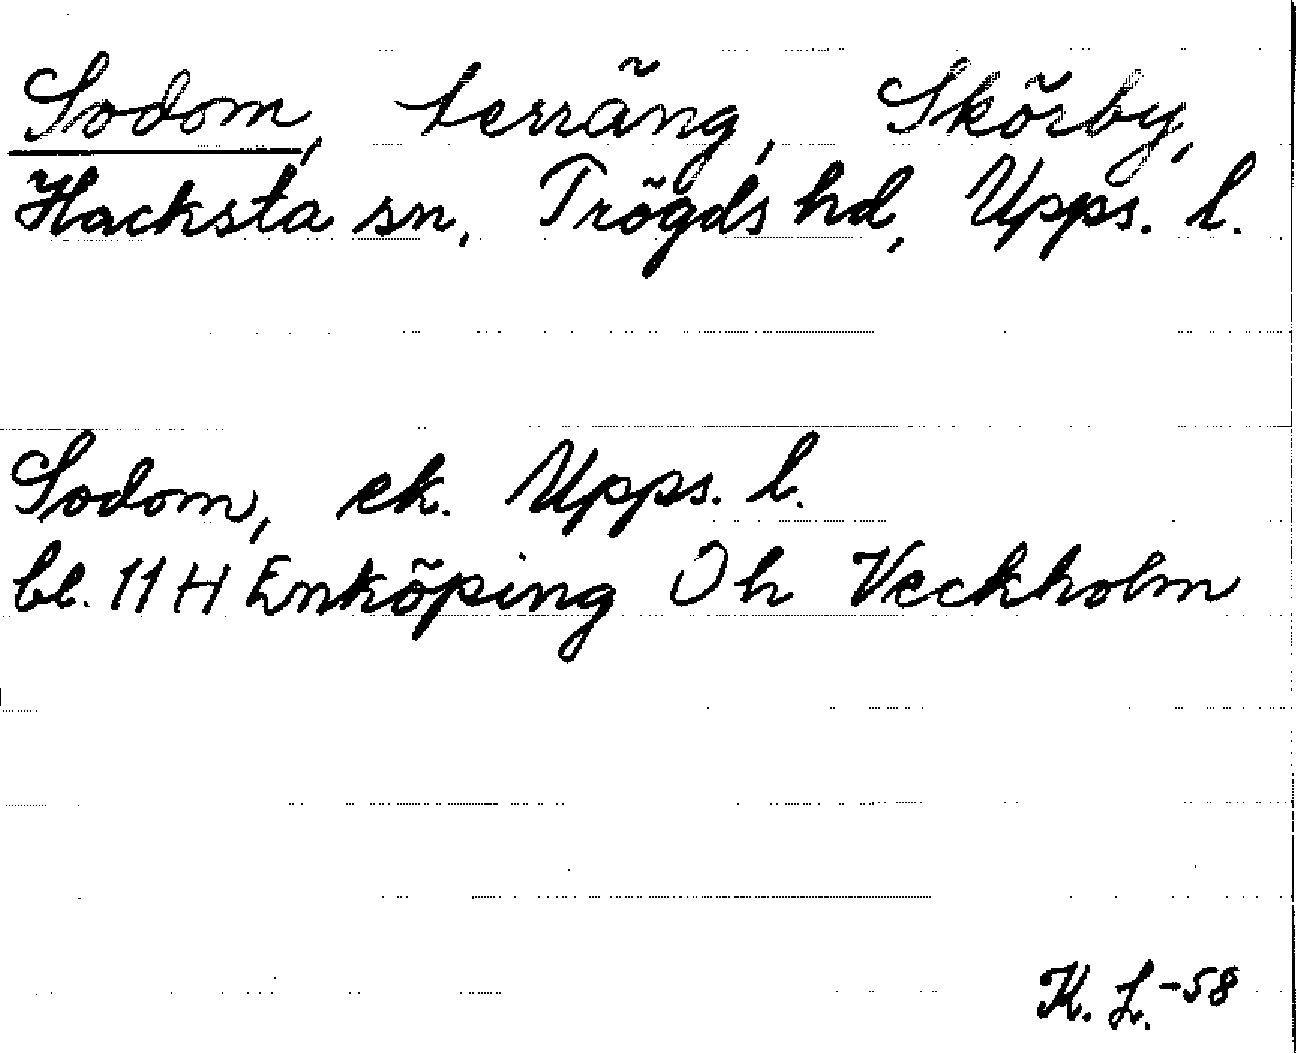 Sodom, terräng, Skörby,
Hacksta sn, Trögds hd, Upps. l.
Sodom, ek. Upps. l.
bl. 11 H Enköping 0 h Veckholm
K. L. -58